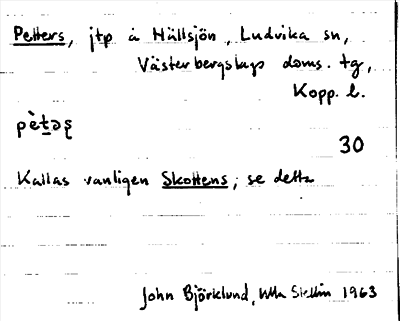 Petters, jtp å Hällsjön, Ludvika sn,
Västerbergslags doms. tg,
Kopp. l.
30
Kallas vanligen Skottens, se detta
John Björklund, Ulla Stellin 1963